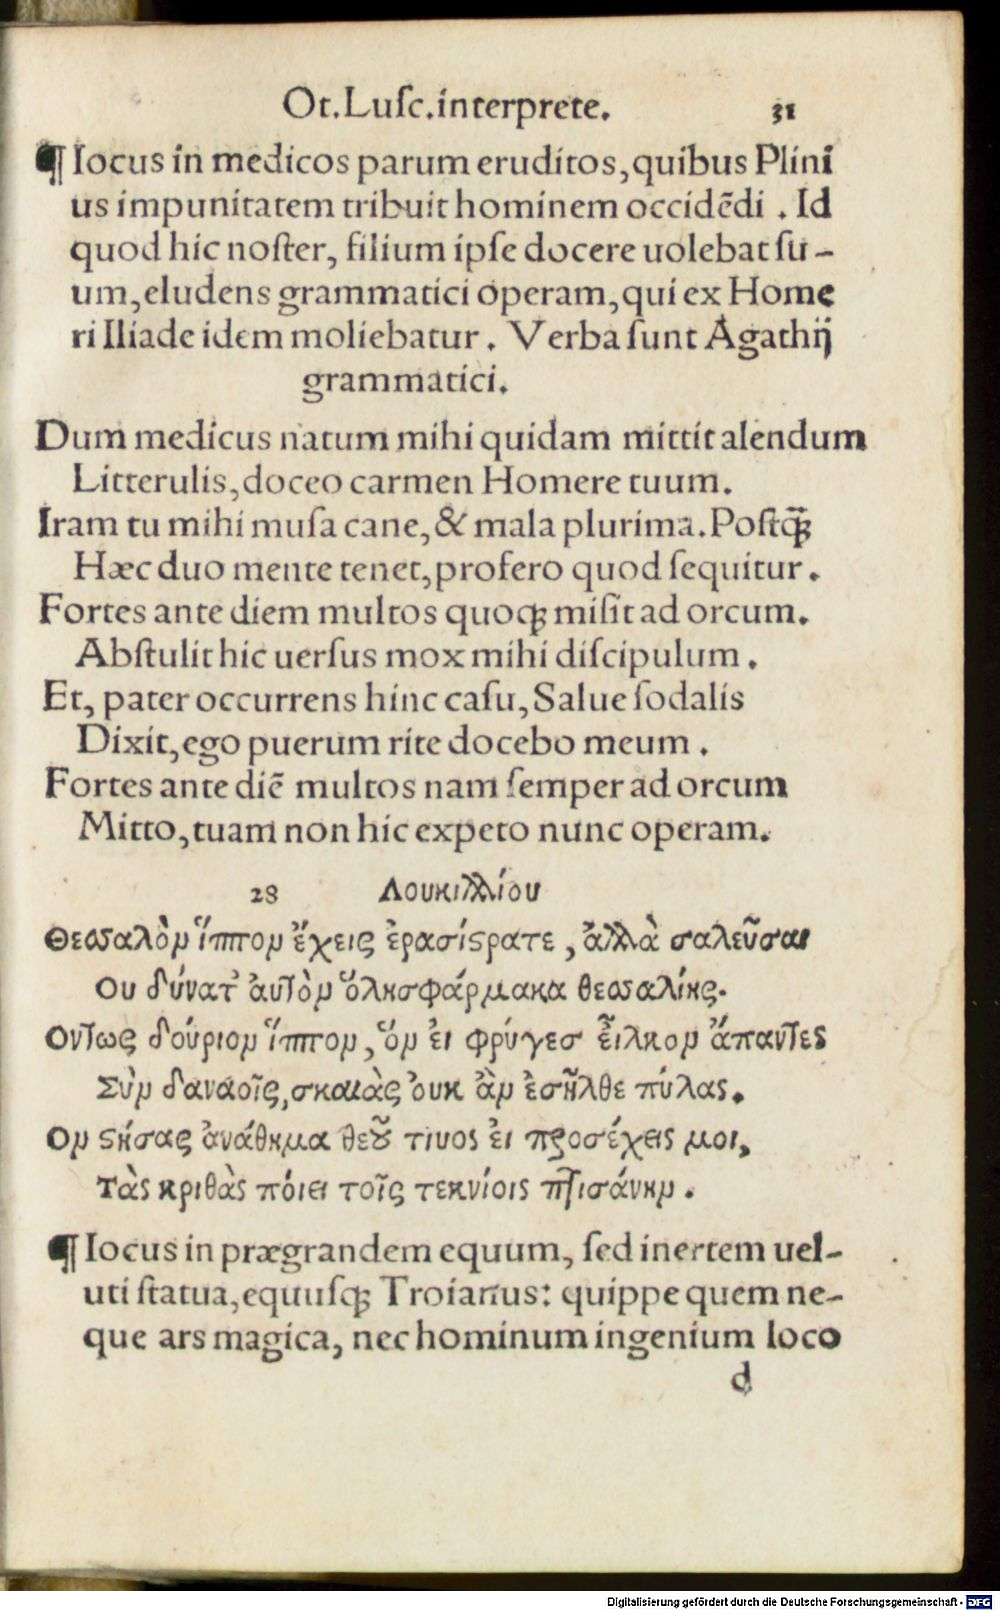 Ot. Luſc. interprete. 31
¶ Iocus in medicos parum eruditos, quibus Plini
us impunitatem tribuit hominem occidēdi . Id
quod hic noſter, filium ipſe docere uolebat ſu-
um, eludens grammatici operam, qui ex Home
ri Iliade idem moliebatur . Verba ſunt Agathij
grammatici.
Dum medicus natum mihi quidam mittit alendum
Litterulis, doceo carmen Homere tuum.
Iram tu mihi muſa cane, & mala plurima. Poſtꝗ̃
Hæc duo mente tenet, profero quod ſequitur .
Fortes ante diem multos quoqꝫ miſit ad orcum.
Abſtulit hic uerſus mox mihi diſcipulum .
Et, pater occurrens hinc caſu, Salue ſodalis
Dixit, ego puerum rite docebo meum .
Fortes ante diē multos nam ſemper ad orcum
Mitto, tuam non hic expeto nunc operam.
28 Λουκιλλίου
Θεσσαλὸν ἵππον ἔχεις ἐρασίϛρατε, ἀλλὰ σαλεῦσαι
Ου δύνατ' ἀυτὸν ὅλησφάρμακα θεσσαλίης.
Οντως δούριον ἵππον, ὅν ἐι φρύγεσ εἷλκον ἅπαντες
Σὺν δαναοῖς, σκαιὰς ὀυκ ἂν ἐσῆλθε πύλας.
Ον ϛήσας ἀνάθημα θεοῦ τινος ἐι προσέχεις μοι,
Τὰς κριθὰς πόιει τοῖς τεκνίοις πτισάνην .
¶ Iocus in prægrandem equum, ſed inertem uel-
uti ſtatua, equuſqꝫ Troianus: quippe quem ne-
que ars magica, nec hominum ingenium loco
d
Digitalisierung gefördert durch die Deutsche Forschungsgemeinschaft - DFG